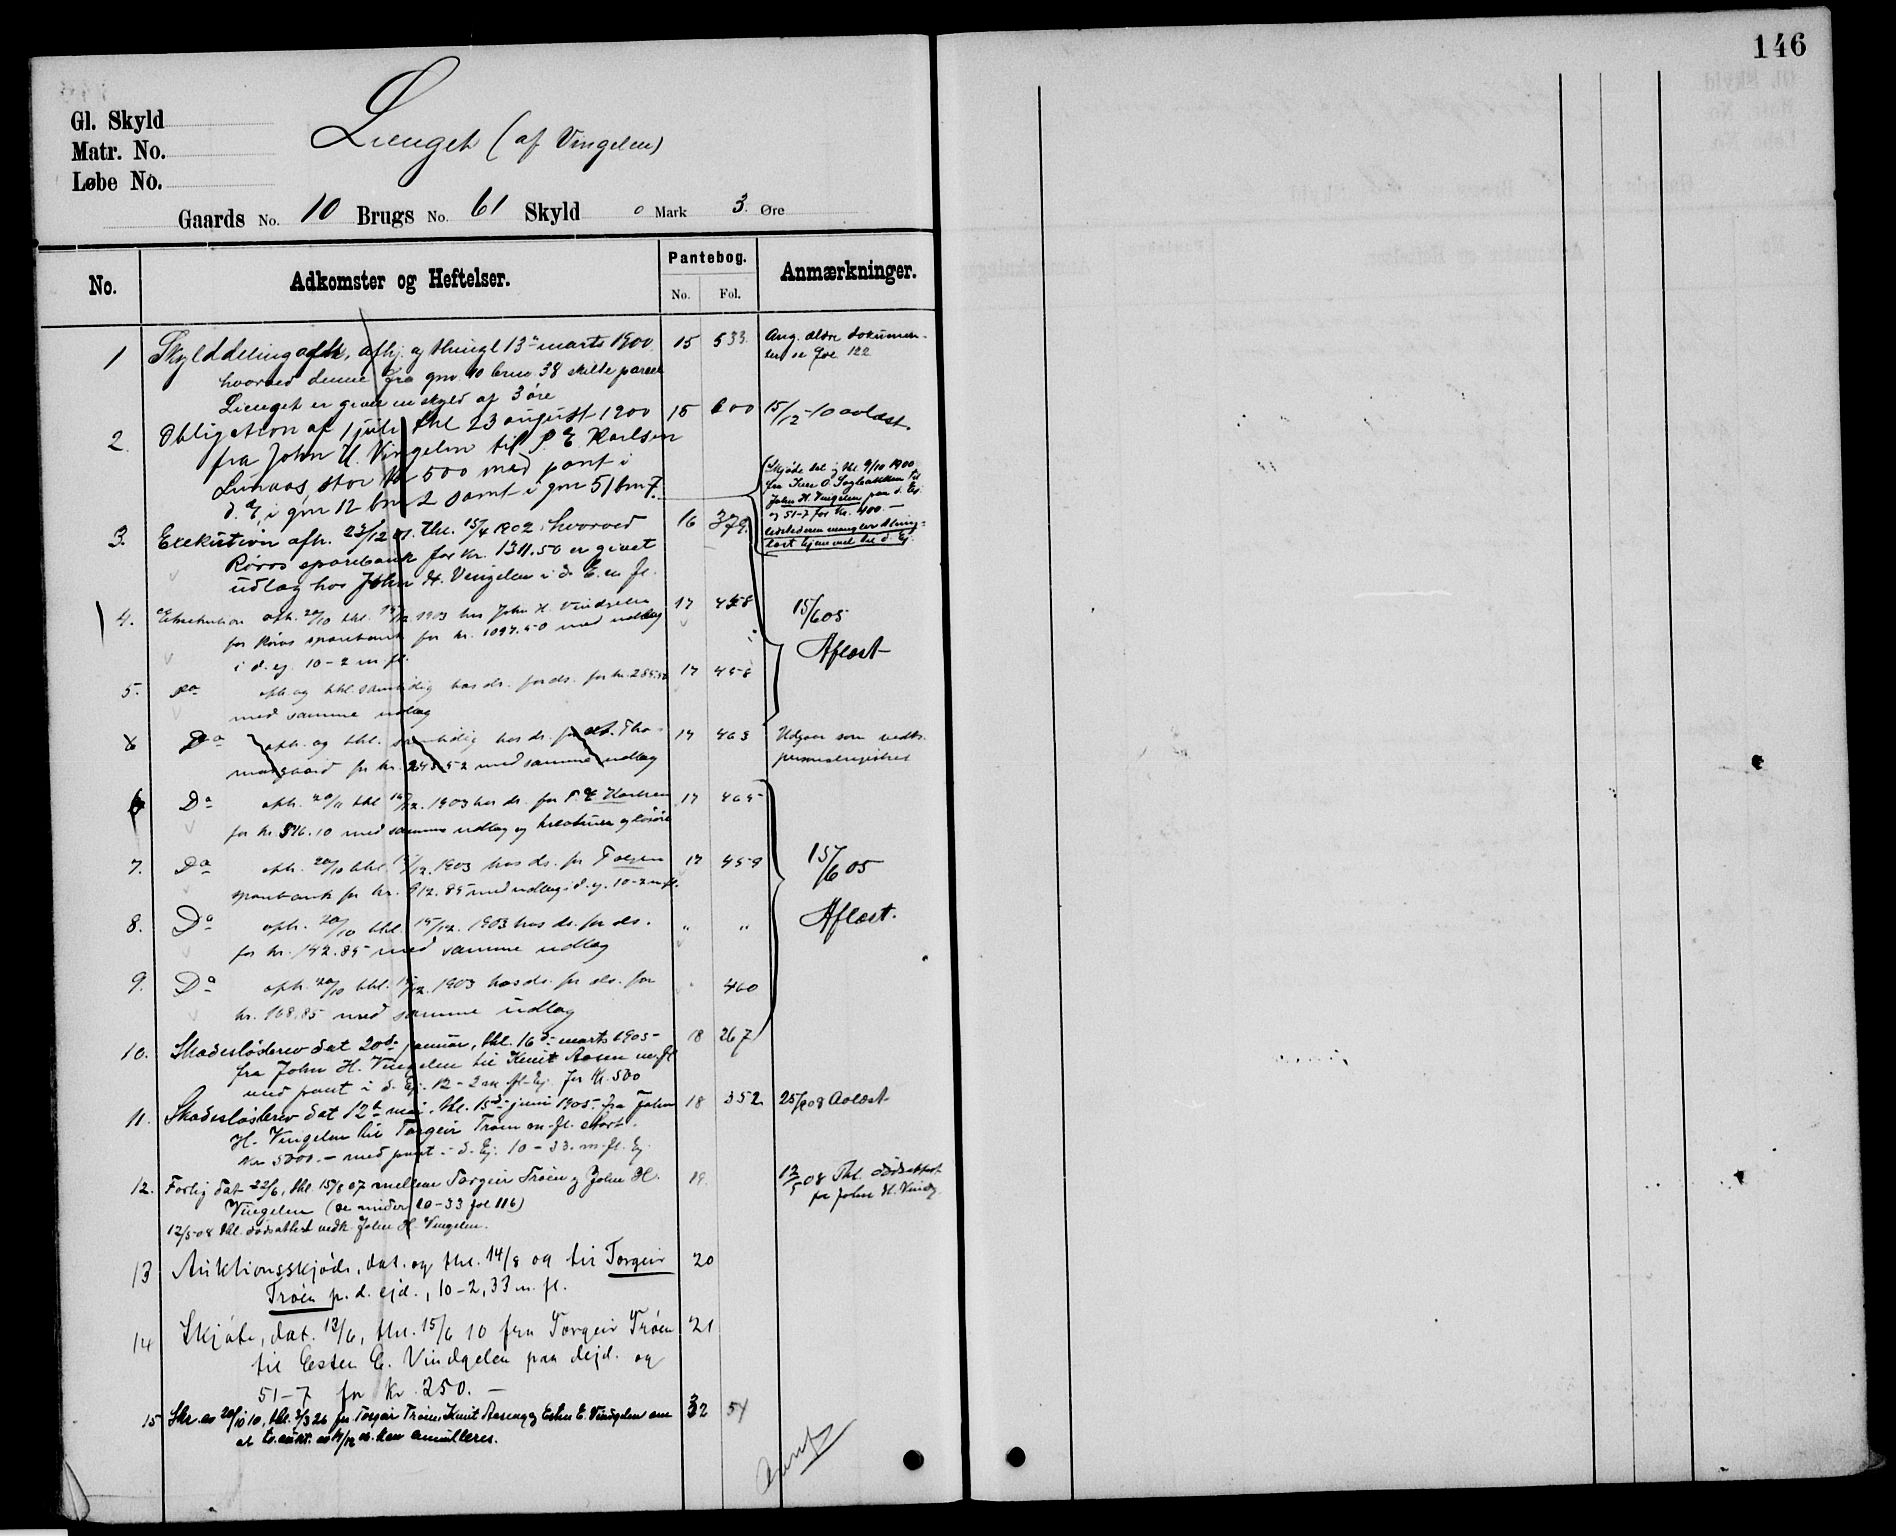 146
Gl. Skyld
Matr. No.
Løbe No.
Lienget (af Vingelen)
Gaards No. 10 Brugs No. 61 Skyld 0 Mark 3 Øre
No. Adkomster og Heftelser. Pantebog. Anmærkninger.
No. Fol.
1 Skylddeling afh, afhj. og thingl 13de marts 1900 15 533 Ang. ældre dokumen-
hvorved denne fra gnr. 10 brnr. 38 skilte parcel ter se fol. 122
Lienget er givet en skyld af 3 øre
2. Obligation af 1 juli thl 23 august 1900 15 600 15/12-10 avlæst.
fra John H. Vingelen til P. E. Karlsen
stor Kr 500 med pant i
d. E, i gnr 12 bnr 2 samt i gnr 51 bnr 7.
Skjøde dat og thl. 9/10 1900
fra Iver O Sagbakken til
John H. Vingelen paa d. Ej
og 51-7 for Kr. 400.-
3. Exekution afh. 23/12 01. thl. 15/4 1902, hvorved 16 379.
Røros sparebank for kr. 1311.50 er givet
udlæg hos John H. Vingelen i d. E. m fl.
4. Exekution afh. 20/10 thl. 15/12 1903 hos John H. Vindgelen 17 458 15/6 05
for Røros sparebank for kr. 1097.50 med udlæg Aflæst
i d. ej. 10-2 m fl.
5. Do afh. og thl. samtidig hos ds. for ds. for kr. 17 458
med samme udlæg
6 Do afh. og thl. samtidig hos ds. for Tho- 17 463 Udgaar som vedk.
masgaard for kr. 243.52 med samme udlæg personalregistret
6 Do afh. 20/11 thl 15/12. 1903 hos ds. for P. E. Karlsen 17 465
for kr. 516.10 med samme udlæg og kreaturer og løsøre
7. Do afh. 20/10 thl. 15/12. 1903 hos ds. for Tolgen 17 459 15/6 05
sparebank for kr. 912.85 med udlæg i d. ej. 10-2 m fl.
8. Do afh. 20/10 thl 15/12. 1903 hos ds. for ds. " " Aflæst.
for kr. 142.85 med samme udlæg
9. Do afh. 20/10 thl. 15/12. 1903 hos ds. for ds. for " 460
kr. 168.85 med samme udlæg
10. Skadesløsbrev dat 20de januar, thl. 16de marts 1905 18 267
fra John H. Vingelen til Knut Aasen m. fl
med pant i d. Ej. 12-2 m. fl. Ej. for Kr. 500
11. Skadesløsbrev dat 12te mai, thl. 15de juni 1905 fra John 18 352 08 Avlæst
H. Vingelen til Torgeir Trøen m. fl. stort
Kr 5000.- med pant i d. Ej. 10-33. m. fl. Ej.
12. Forlig dat 22/6, thl. 15/8 07 mellem Torgeir Trøen og John H. 19. 12/5 08 Thl. dødsattest
Vingelen (se under 10-33 fol 116) for John H. Vindg.
12/5-08 thl. dødsattest vedk. John H. Vingelen.
13 Auktionsskjøde, dat. og thl. 14/8 09 til Torgeir 20
Trøen p. d. ejd., 10-2, 33 m. fl.
14 Skjøte, dat. 13/6, thl. 15/6 10 fra Torgeir Trøen 21
til Esten E. Vindgelen paa d ejd. og
51-7 for kr. 250.-
15 Skr. av 20/10 10, thl. 2/3 26 fra Torgeir Trøen, Knut Aasen og Esten E. Vindgelen om 32 54
at kan annulleres.